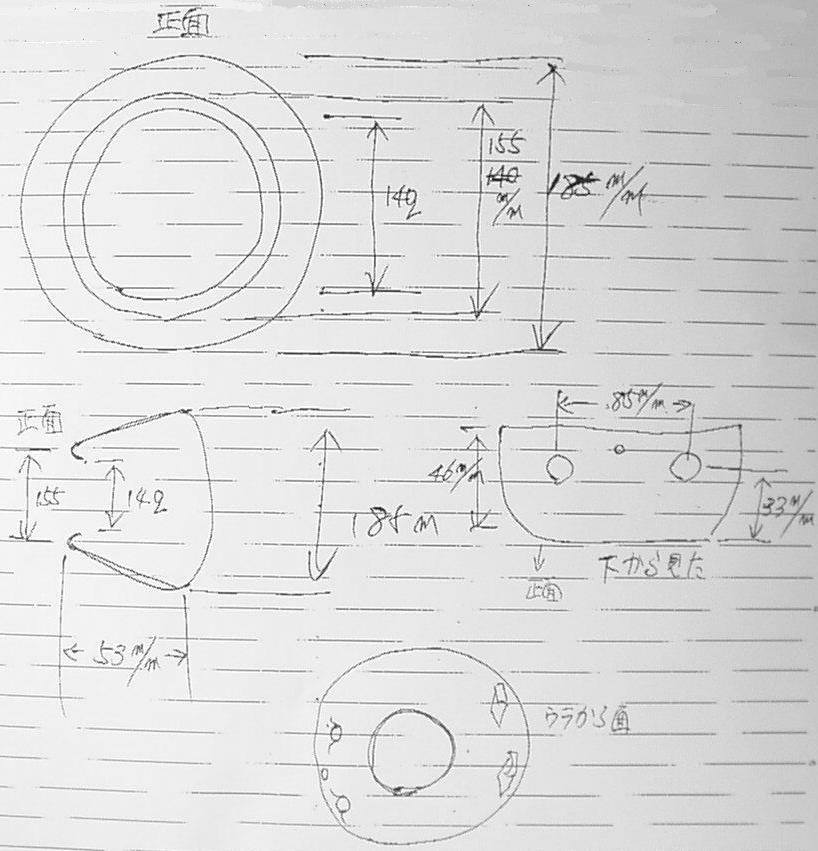 正面
155
140
m/m
142
185 m/m
正面
155
142
185 m
53 m/m
85 m/m
46 m/m
33 m/m
正面
下から見た
ウラから面